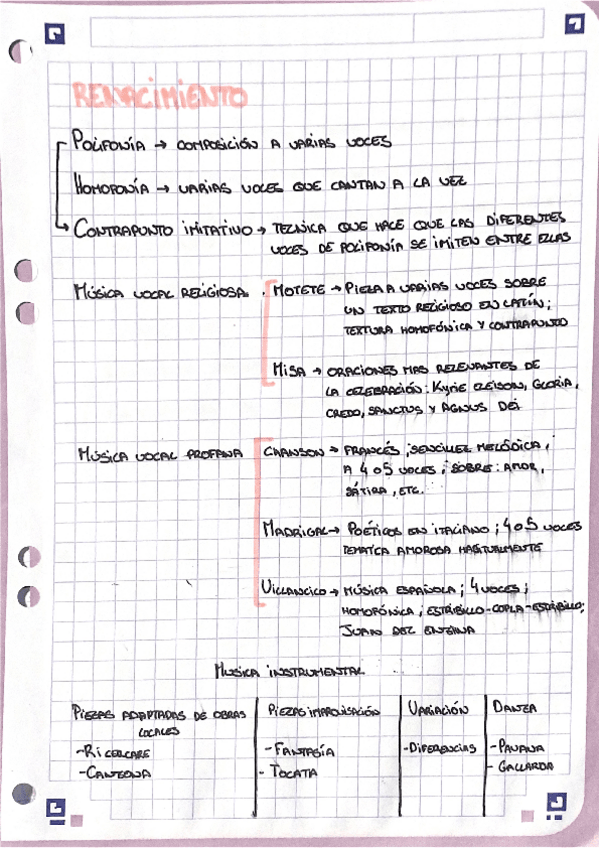 RENACIMIENTO
POLIFONÍA → COMPOSICIÓN A VARIAS VOCES
HOMOFONÍA → VARIAS VOCES QUE CANTAN A LA VEZ
CONTRAPUNTO IMITATIVO → TECNICA QUE HACE QUE LAS DIFERENTES
VOCES DE POLIFONÍA SE IMITEN ENTRE ELLAS
MÚSICA VOCAL RELIGIOSA. MOTETE → PIEZA A VARIAS VOCES SOBRE
UN TEXTO RELIGIOSO EN LATÍN;
TEXTURA HOMOFÓNICA Y CONTRAPUNTO
MISA → ORACIONES MAS RELEVANTES DE
LA CELEBRACIÓN: KYRIE ELEISON, GLORIA,
CREDO, SANCTUS Y AGNUS DEI
MÚSICA VOCAL PROFANA CHANSON → FRANCÉS; SENCILLEZ MELÓDICA;
A 4 o 5 VOCES; SOBRE: AMOR,
SÁTIRA, ETC.
MADRIGAL → POÉTICOS EN ITALIANO; 4 o 5 VOCES
TEMATICA AMOROSA HABITUALMENTE
VILLANCICO → MÚSICA ESPAÑOLA; 4 VOCES;
HOMOFÓNICA; ESTRIBILLO-COPLA-ESTRIBILLO;
JUAN DEL ENZINA
MUSICA INSTRUMENTAL
PIEZAS ADAPTADAS DE OBRAS
LOCALES
-RICERCARE
-CANZONA
PIEZAS IMPROVISACIÓN
-FANTASÍA
-TOCATA
VARIACIÓN
-DIFERENCIAS
DANZA
-PAVANA
-GALLARDA